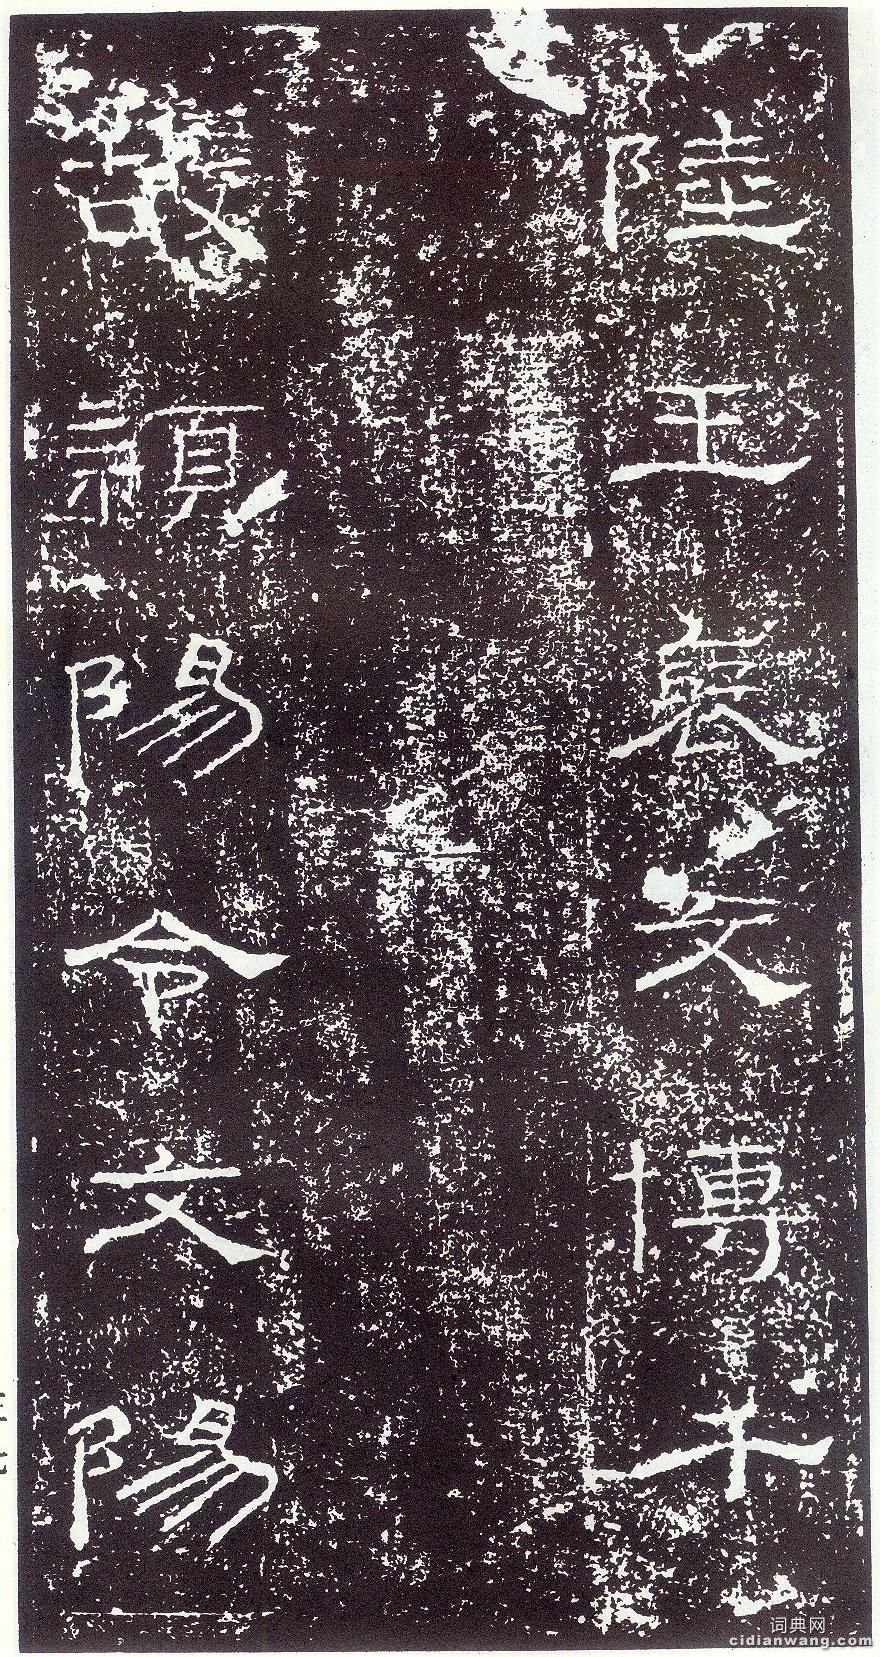 陸王褒文博千
故穎陽令文陽
词典网
cidianwang.com